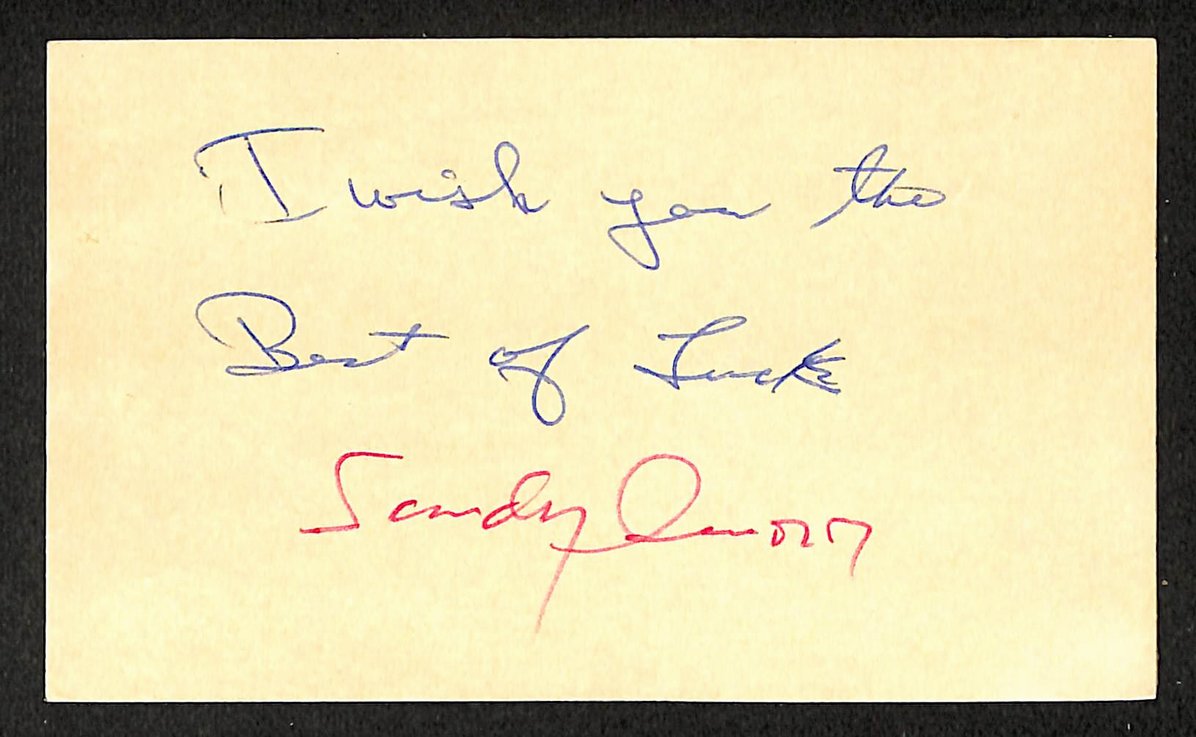 I wish you the
Best of Luck
Sandy Amoros